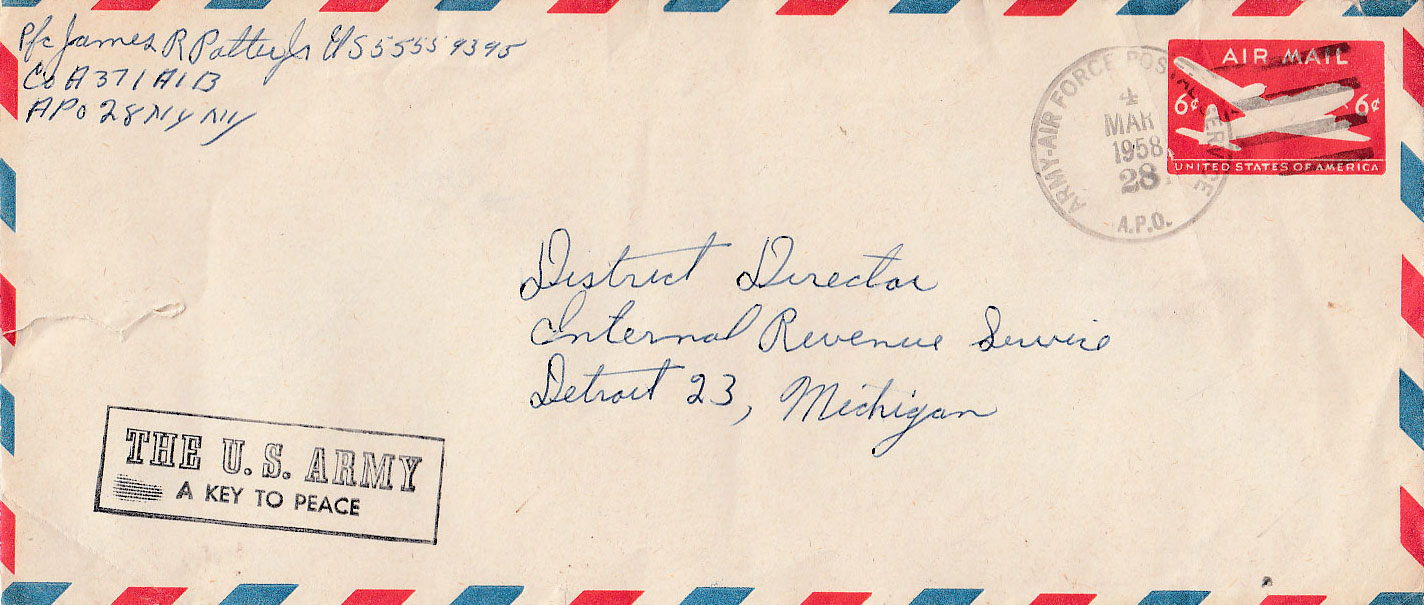 Pfc James R Potter Jr US 55559395
Co A 371 AIB
APo 28 NY NY
ARMY-AIR FORCE POSTAL SERVICE
4
MAR
1958
28
A.P.O.
AIR MAIL
6¢ 6¢
UNITED STATES OF AMERICA
District Director
Internal Revenue Service
Detroit 23, Michigan
THE U.S. ARMY
A KEY TO PEACE